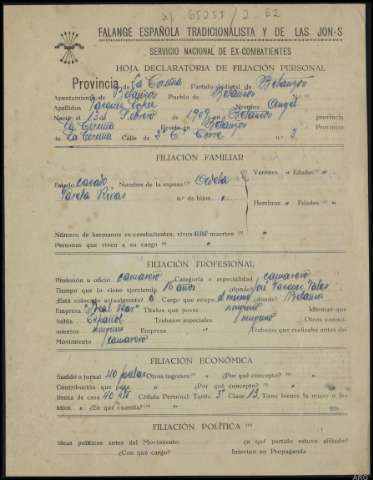 a) 65251/2-62
FALANGE ESPAÑOLA TRADICIONALISTA Y DE LAS JON-S
SERVICIO NACIONAL DE EX-COMBATIENTES
HOJA DECLARATORIA DE FILIACIÓN PERSONAL
Provincia de La Coruña Partido judicial de Betanzos
Ayuntamiento de Betanzos Pueblo de Betanzos
Apellidos López Nombre Angel
Nació el 13 de Febrero de 1909 en Betanzos provincia
La Coruña Reside en Betanzos Provincia
de La Coruña Calle de Torre n.º 2
FILIACIÓN FAMILIAR
Estado casado Nombres de la esposa Odela Varones " Edades "
Varela Rivas n.º de hijos
Hembras " Edades "
Número de hermanos ex-combatientes, vivos muertos "
Personas que viven a su cargo "
FILIACIÓN PROFESIONAL
Profesión u oficio camarero Categoría o especialidad camarero
Tiempo que lo viene ejerciendo 10 años (donde)
¿Está colocado actualmente? Cargo que ocupa el mismo (donde) Betanzos
Empresa Títulos que posee ninguno Idiomas que
habla Español Trabajos especiales ninguno Otros conoci-
mientos ninguno Empresa Trabajos que realizaba antes del
Movimiento camarero
FILIACIÓN ECONÓMICA
Sueldo o jornal 40 Otros ingresos " ¿Por qué concepto? "
Contribución que " ¿Por qué concepto? "
limita de casa 40 Cédula Personal Tarifa 3ª Clase 13 Tiene bienes la mujer o los
hijos " ¿En qué cuantía? "
FILIACIÓN POLÍTICA
Ideas políticas antes del Movimiento ¿a qué partido estuvo afiliado?
¿Con qué cargo? Intervino en Propaganda